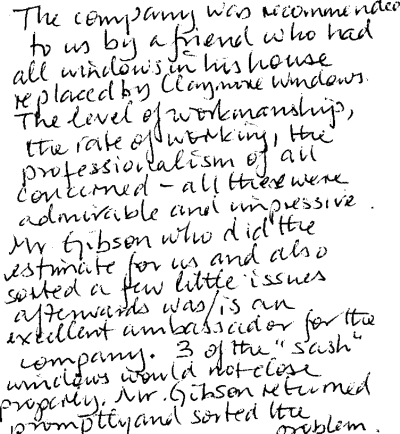 The company was recommended
to us by a friend who had
all windows in his house
replaced by Claymore windows.
The level of workmanship,
the rate of working, the
professionalism of all
concerned - all these were
admirable and impressive.
Mr Gibson who did the
estimate for us and also
sorted a few little issues
afterwards was/is an
excellent ambassador for the
company. 3 of the "sash"
windows would not close
properly. Mr. Gibson returned
promptly and sorted the
problem.